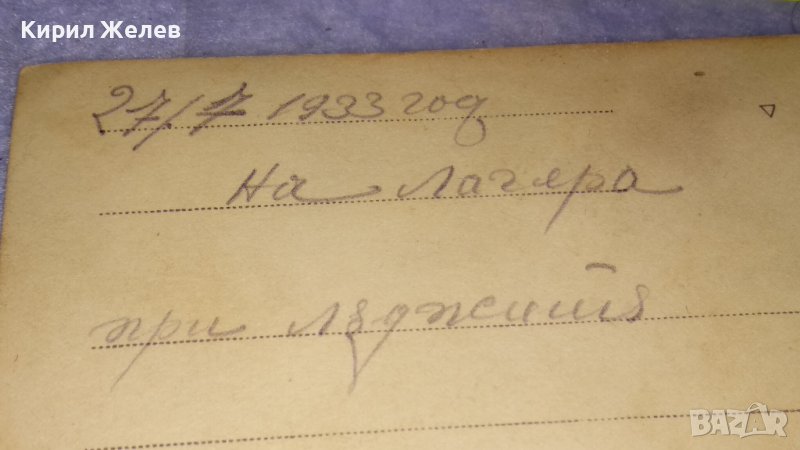 Кирил Желев
27/7 1933 год
На Лагера
при Лъджитѣ
BAZAR